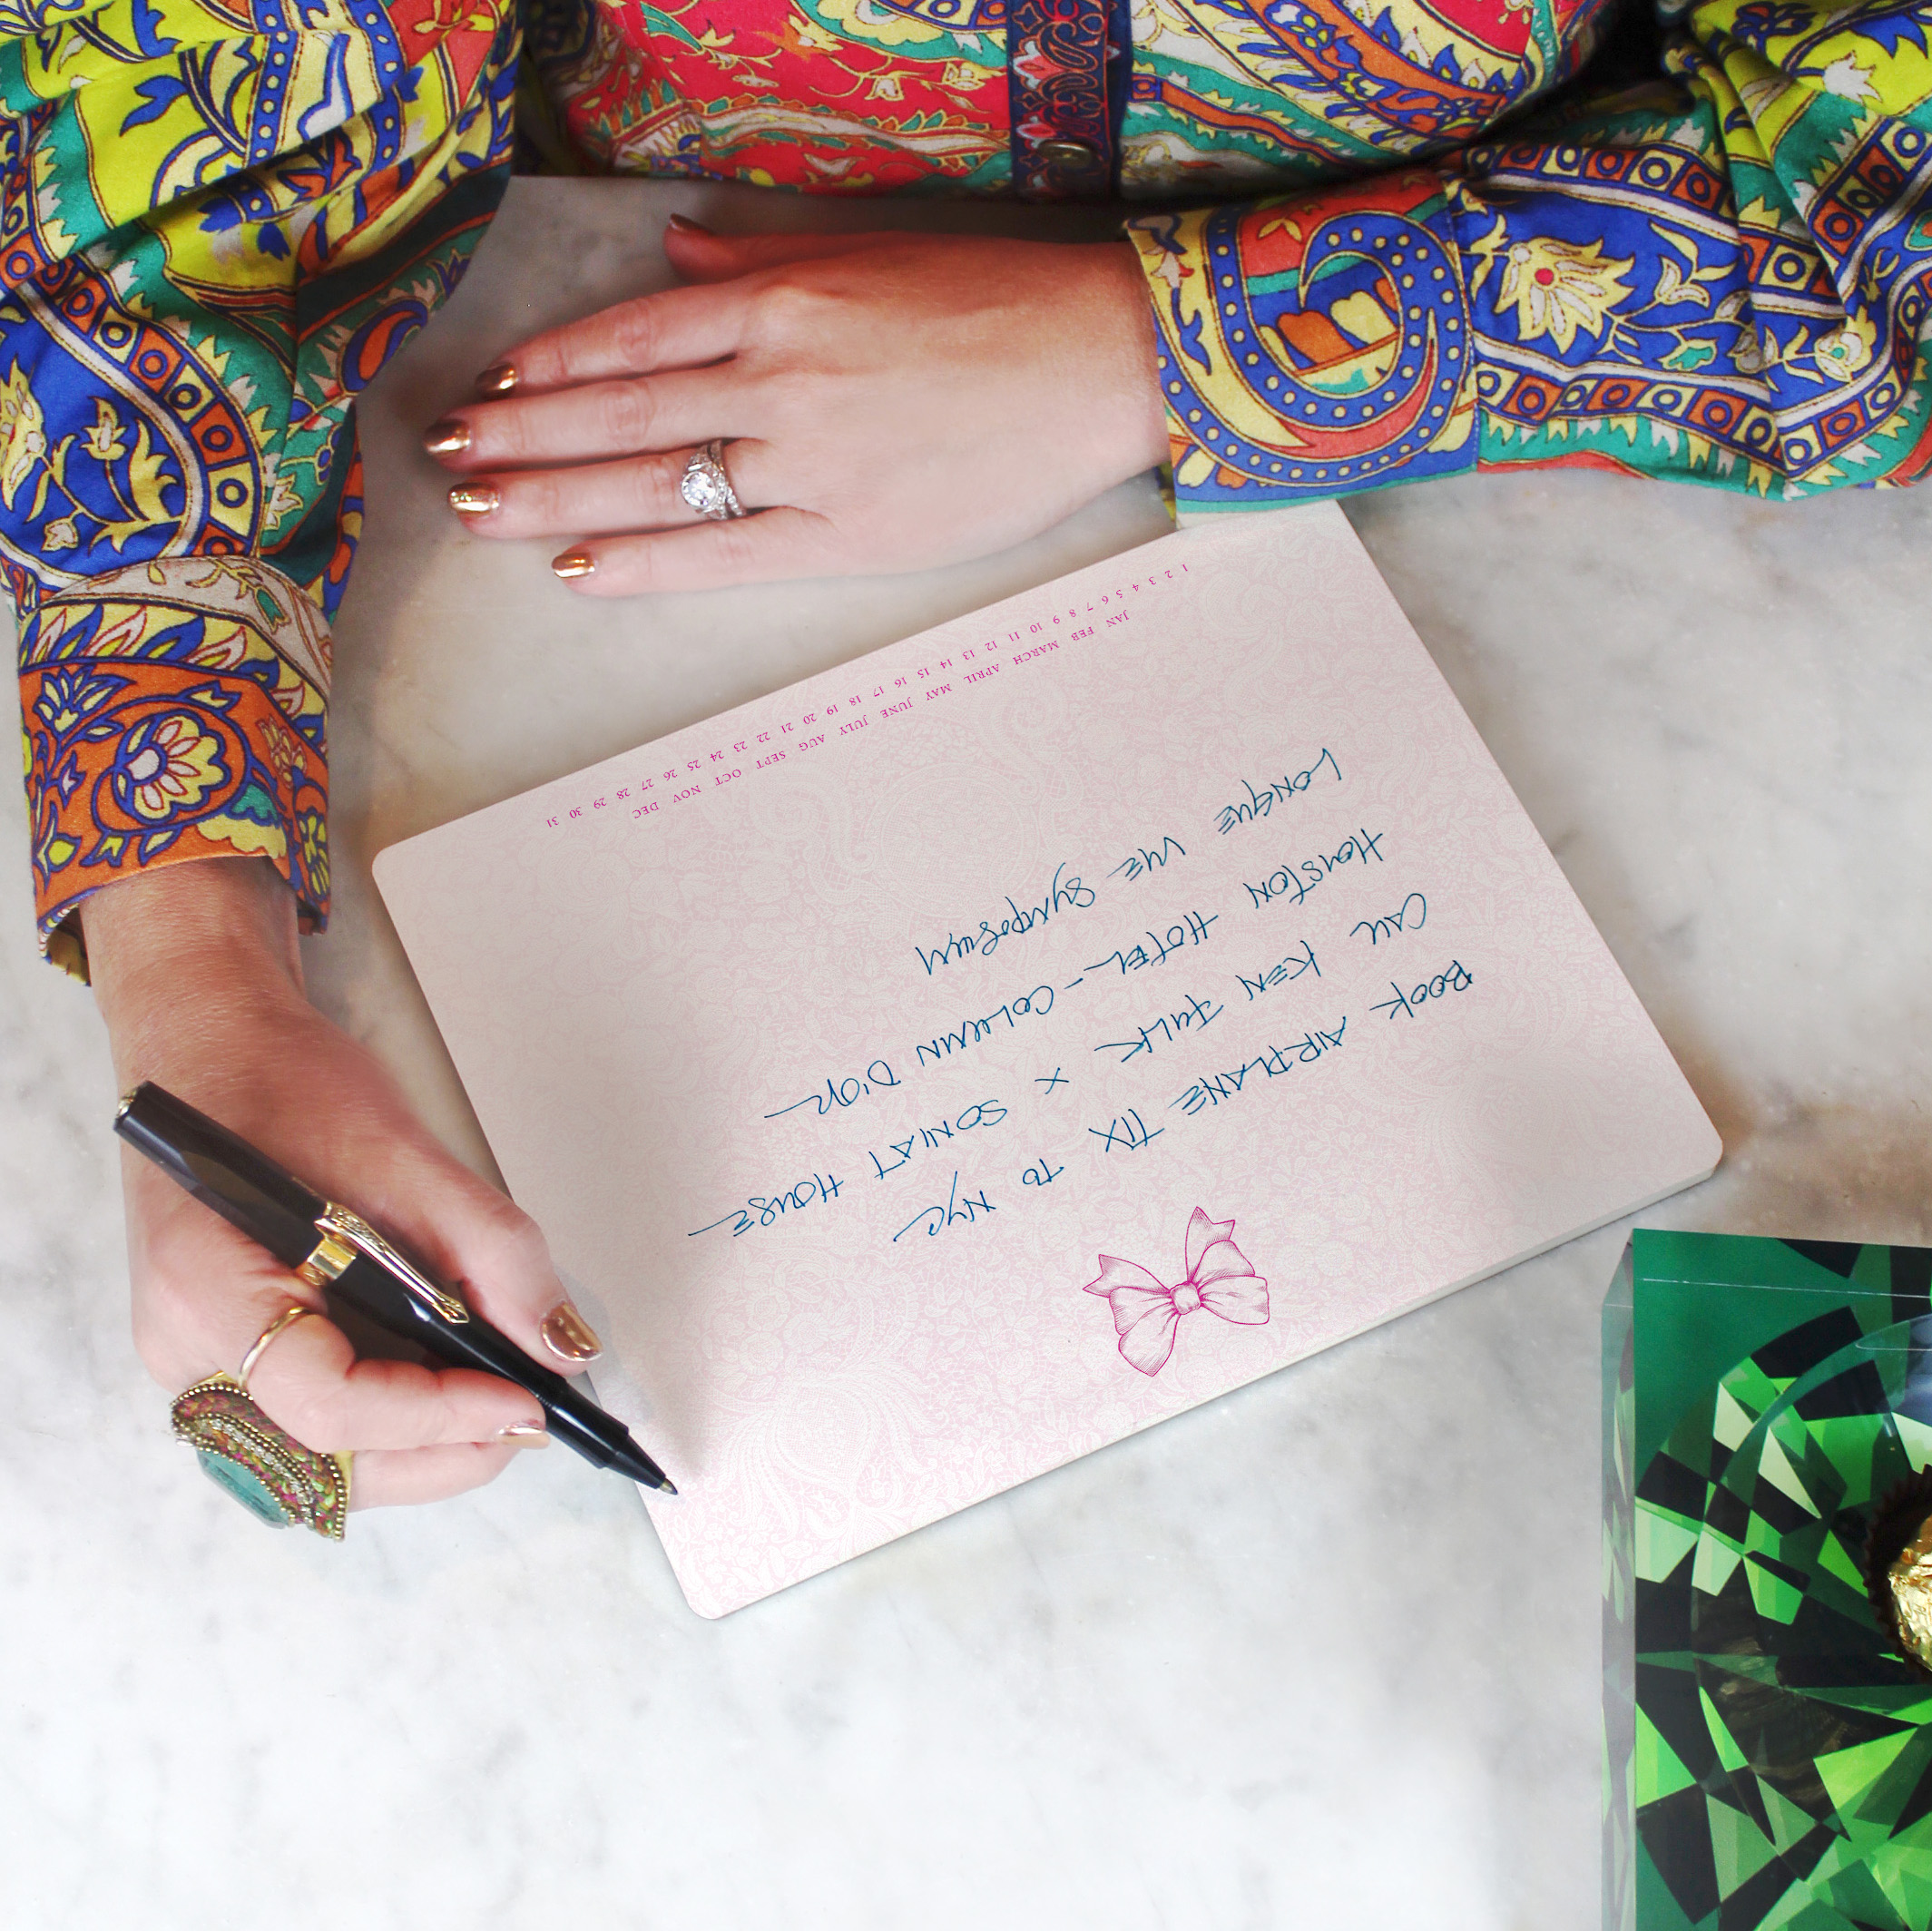 1 2 3 4 5 6 7 8 9 10 11 12 13 14 15 16 17 18 19 20 21 22 23 24 25 26 27 28 29 30 31
JAN FEB MARCH APRIL MAY JUNE JULY AUG SEPT OCT NOV DEC
LONGUE VUE SYMPOSIUM
HOUSTON HOTEL - COLUMN DIOR
CALL KEN FULK X SONIAT HOUSE
BOOK AIRPLANE TIX TO NYC